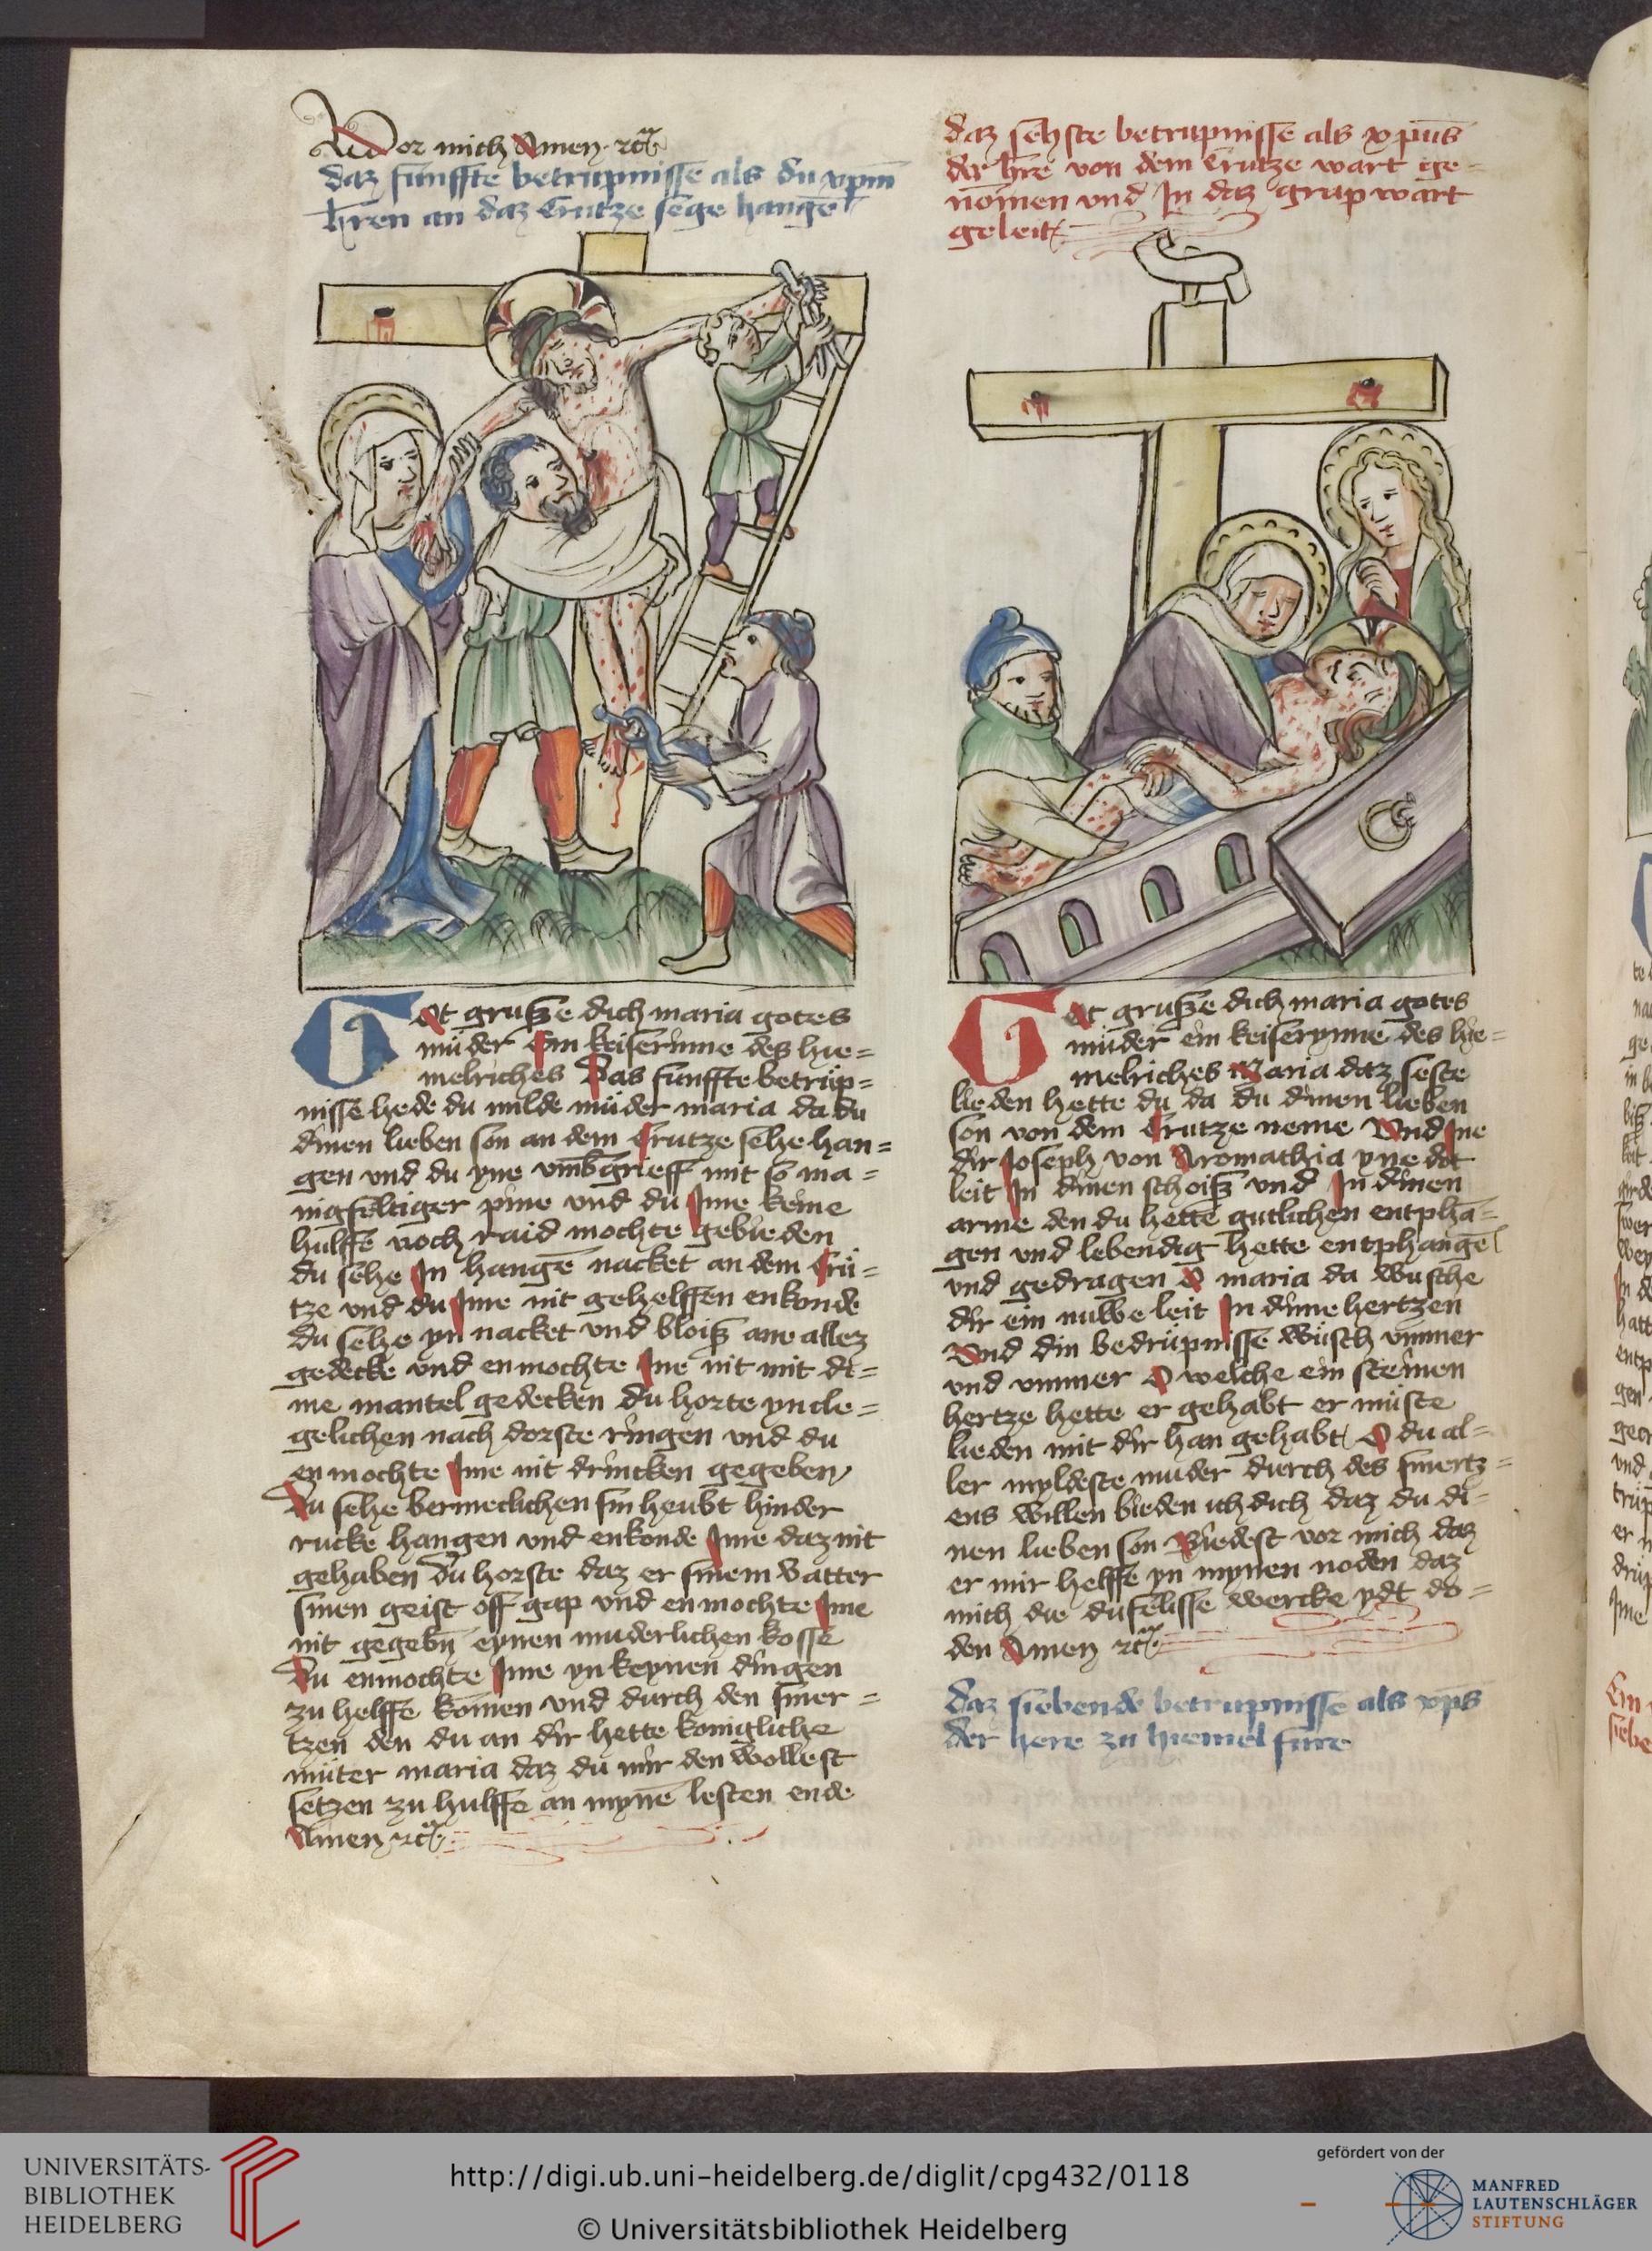 Vor mich Amen· rc̃
daz funffte betrupnisse als du xpm̄
hren an daz Crutze sege hangē
Got grusze dich maria gotes
müder Ein keiserinne des hie=
melriches Das funffte betrüp=
nisse hede du milde müder maria da du
dinen lieben son an dem Crutze sehe han=
gen vnd du yne vmbgrieff mit so ma=
nigfeltiger pine vnd du Ime keine
hulffe noch raid mochte gebieden
du sehe In hangē nacket an dem Crü=
tze vnd du Ime nit gehelffen enkonde
du sehe yn nacket vnd bloisz ane allez
gedecke vnd enmochte Ine nit mit di=
me mantel gedecken du horte yn cle=
gelichen nach dorste ringen vnd du
enmochte Ime nit drincken gegeben
Du sehe bermeclichen sin heubt hinder
rucke hangen vnd enkonde Ime daz nit
gehaben Du horste daz er sinem vatter
sinen geist off gap vnd enmochte Ime
nit gegebn̄ eynen muderlichen kosse
Du enmochte Ime yn keynen dingen
zu helffe komen vnd durch den smer=
tzen den du an dir hette konigliche
muter maria daz du mir den wollest
setzen zu hulffe an mynē lesten ende
Amen rc̃
daz sehste betrupnisse als xpūs
der hre von dem Crutze wart ge=
nomen vnd In daz grap wart
geleit
Got grusze dich maria gotes
müder ein keiserynne des hie=
melriches Maria daz seste
lieden hette du da du dinen lieben
son von dem Crutze neme Vnd Ine
dir Joseph von Aromathia yne dot
leit In dinen schoisz vnd In dinen
arme den du hette gutlichen entpha=
gen vnd lebendig hette entphangē
vnd gedragen O maria da wusche
dir ein nuwe leit In dime hertzen
Vnd din bedrüpnisse wüsch ymmer
vnd ymmer O welche ein steinen
hertze hette er gehabt er müste
lieden mit dir han gehabt O du al=
ler myldeste muder durch des smertz=
ens willen bieden ich dich daz du di=
nen lieben son Biedest vor mich daz
er mir helffe yn mynen noden daz
mich die dufelisse wercke ydt do=
den Amen rc̃
daz siebende betrupnisse als xp̄s
der here zu hiemel fure
UNIVERSITÄTS-
BIBLIOTHEK
HEIDELBERG
http://digi.ub.uni-heidelberg.de/diglit/cpg432/0118
© Universitätsbibliothek Heidelberg
gefördert von der
MANFRED
LAUTENSCHLÄGER
STIFTUNG